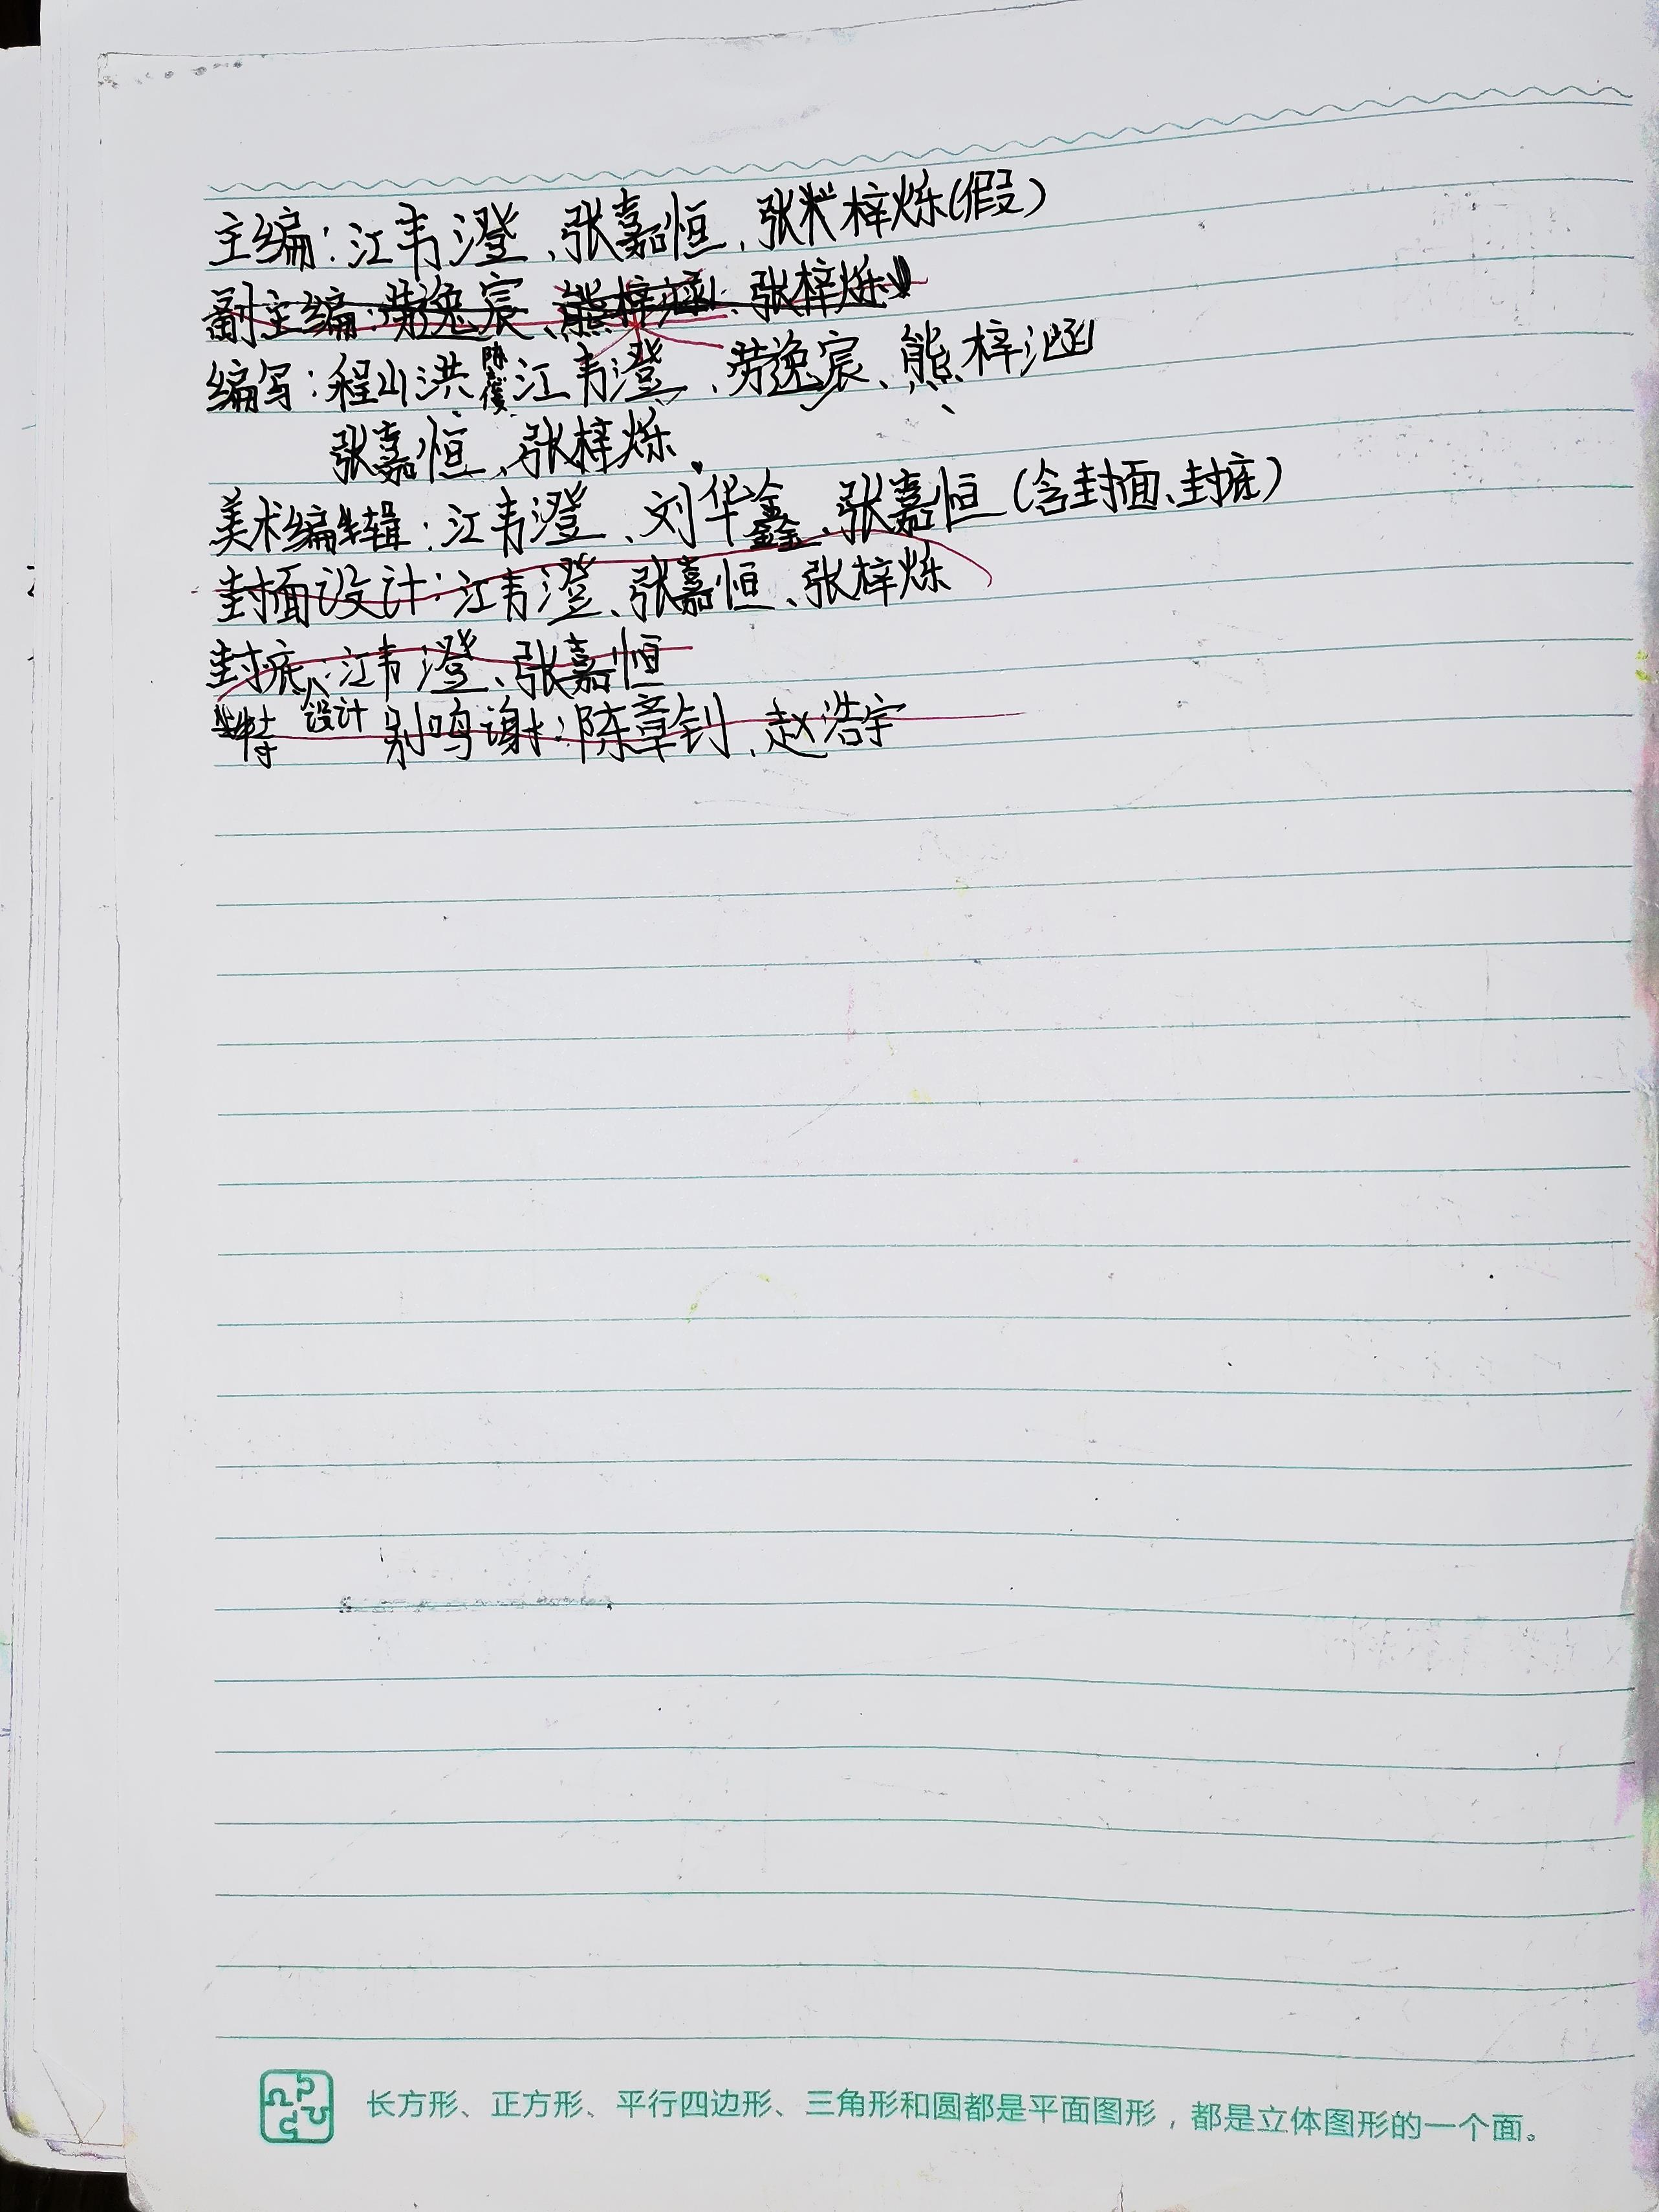 主编：江韦澄、张嘉恒，张梓烁(假)
副主编：劳逸宸、熊梓涵、张梓烁
编写：程山洪 江韦澄、劳逸宸、熊梓涵、
张嘉恒、张梓烁。
美术编辑：江韦澄、刘华鑫、张嘉恒(含封面、封底)
封面设计：江韦澄、张嘉恒、张梓烁
封底设计：江韦澄、张嘉恒
特别鸣谢：陈章钊、赵浩宇
长方形、正方形、平行四边形、三角形和圆都是平面图形，都是立体图形的一个面。